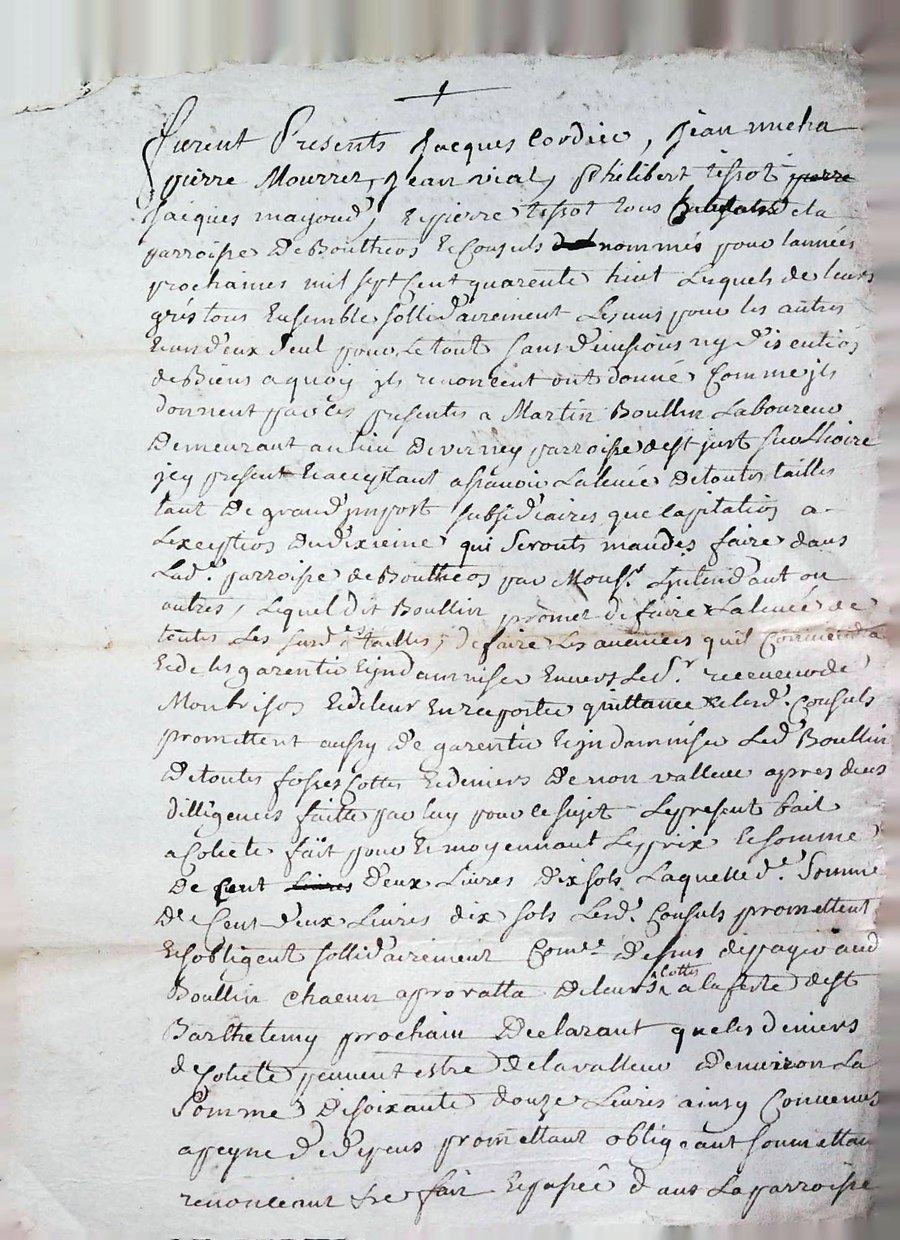 furent Presents Jacques Cordier, Jean micha
pierre Mourrer, Jean vial, Philibert tissot pierre
Jacques mayoud, & pierre tissot tous habitans de la
parroisse de Boutheos & Consuls nommés pour lannée
prochaines mil sept Cent quarente huit Lesquels de leurs
grés tous Ensemble sollidairement Les uns pour les autres
Et un d'eux seul pour Le tout sans divisions ny discutios
de Biens a quoy jls renoncent ont donné Comme jls
donnent par Ces presentes a Martin Boullin Laboureur
Demeurant au lieu de verney parroisse de st just sur Lhoire
jcy present & acceptant a scavoir La levée De toutes tailles
tant De grand jmport subsidiaires que Capitatios a
Lexceptios Du dixieme qui seronts mandés faire dans
Lad.e parroisse de Boutheos par Mons.r Lintendant ou
autres, Lequel dit Boullin promet de faire La levée de
toutes Les susd.es tailles, de faire Les avences quil Conviendra
Et de les garentir & jndamniser Envers Led.r recepveur de
Montbrisos & de leur En raporter quittance & lesd.s Consuls
promettent aussy De garentir & jndamniser Led.t Boullin
De toutes fosses Cottes & deniers De non valleur apres dues
dilligences faitte par luy pour Ce sujet Le present bail
a Colecte fait pour & moyennant Le prix & somme
De Cent Livres deux Livres dix sols Laquelle d.e Somme
De Cent deux Livres dix sols Lesd.s Consuls promettent
& sobligent sollidairement Com.e dessus de payer aud
Boullin chacun a proratta De leurs Cottes a la feste de st
Barthelemy prochain Declarant que les deniers
de Colecte peuvent estre de la valleur denviron La
Somme De soixante douze Livres ainsy Convenus
a peyne De depens promettant obligeant soumettan
renonceant &c fait & passé dans La parroisse